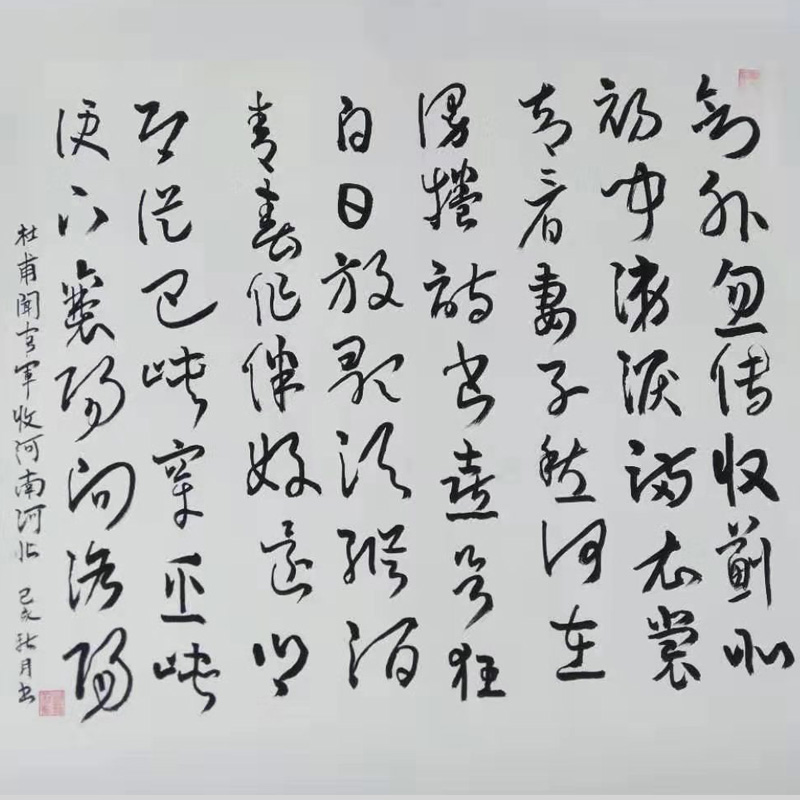 剑外忽传收蓟北
初闻涕泪满衣裳
却看妻子愁何在
漫捲诗书喜欲狂
白日放歌须纵酒
青春作伴好还乡
即从巴峡穿巫峡
便下襄阳向洛阳
杜甫闻官军收河南河北 己亥秋月书